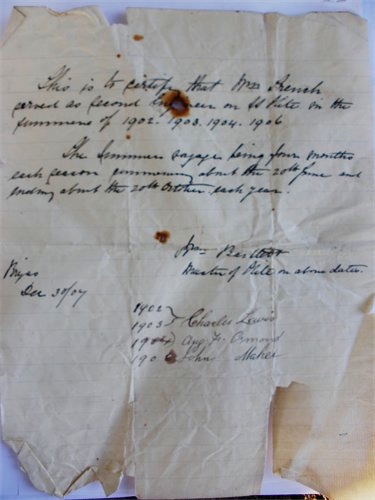 This is to certify that Wm French
served as Second Engineer on SS Kite in the
summers of 1902. 1903. 1904. 1906
The Summers voyages being four months
each season commencing about the 20th June and
ending about the 20th October each year.
Wm Bartlett
Master of Kite on above dates.
Brigus
Dec 30/07
1902
1903 Charles Lewis
1904 Aug. Fr. Ormond
190 John Maher